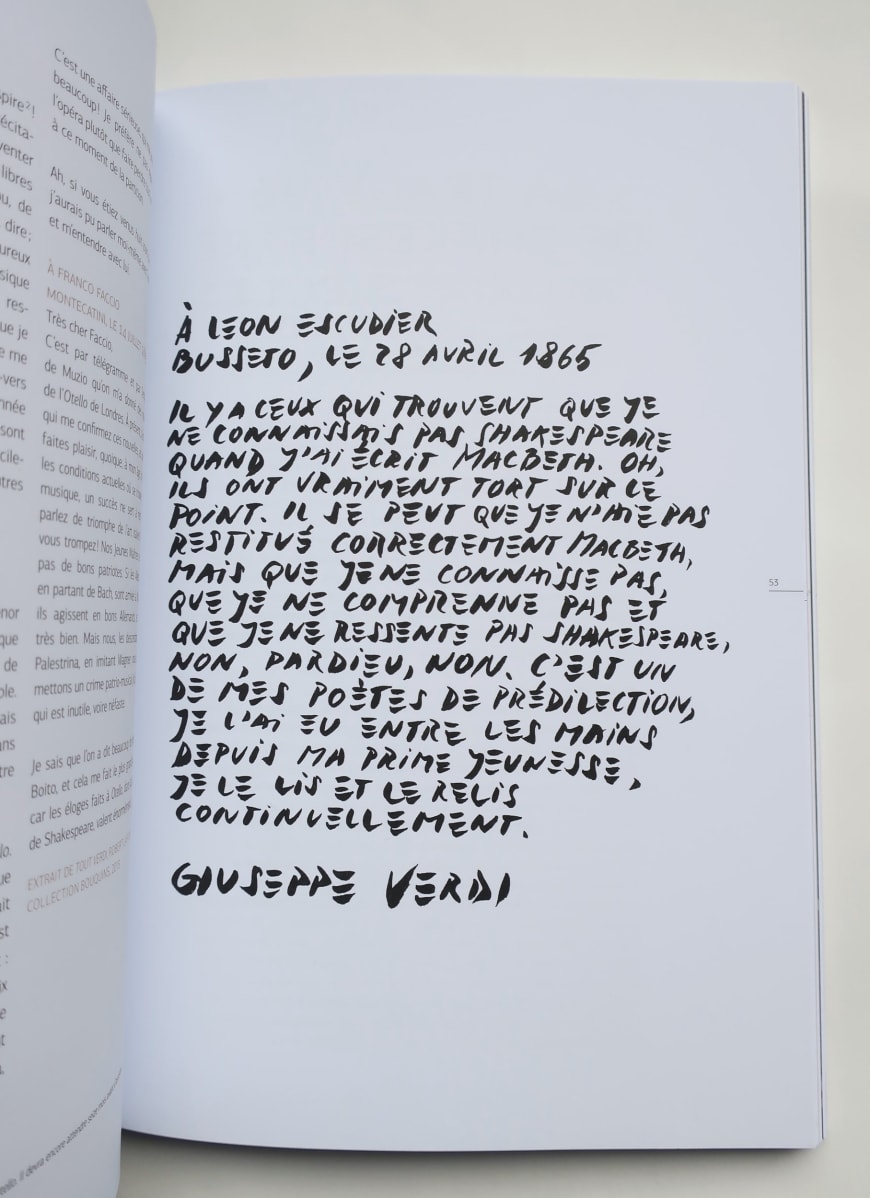 pire?!
écita-
venter
libres
u, de
dire;
ureux
sique
res-
que je
e me
-vers
nnée
sont
cile-
utres
nor
que
de
ple.
ais
ans
tre
lo.
ue
ait
st
:
ix
e
nt
C'est une affaire sérieuse,
beaucoup! Je préfère ne
l'opéra plutôt que faire
à ce moment de la
Ah, si vous étiez venus
j'aurais pu parler moi-même
et m'entendre avec lui!
À FRANCO FACCIO
MONTECATINI, LE 14 JUILLET
Très cher Faccio,
C'est par télégramme et par
de Muzio qu'on m'a donné
de l'Otello de Londres. À présent
qui me confirmez ces nouvelles,
faites plaisir, quoique, à mon
les conditions actuelles où
musique, un succès ne sert à
parlez de triomphe de l'art
vous trompez! Nos Jeunes
pas de bons patriotes. Si les
en partant de Bach, sont arrivés à
ils agissent en bons Allemands
très bien. Mais nous, les descendants
Palestrina, en imitant Wagner
mettons un crime patrio-musical,
qui est inutile, voire néfaste.
Je sais que l'on a dit beaucoup
Boito, et cela me fait le plus grand
car les éloges faits à Otello,
de Shakespeare, valent énormément
EXTRAIT DE TOUT VERDI, ROBERT
COLLECTION BOUQUINS
Il devra encore attendre
À LEON ESCUDIER
BUSSETO, LE 28 AVRIL 1865
IL Y A CEUX QUI TROUVENT QUE JE
NE CONNAISSAIS PAS SHAKESPEARE
QUAND J'AI ÉCRIT MACBETH. OH,
ILS ONT VRAIMENT TORT SUR CE
POINT. IL SE PEUT QUE JE N'AIE PAS
RESTITUÉ CORRECTEMENT MACBETH,
MAIS QUE JE NE CONNAISSE PAS,
QUE JE NE COMPRENNE PAS ET
QUE JE NE RESSENTE PAS SHAKESPEARE,
NON, PARDIEU, NON. C'EST UN
DE MES POÈTES DE PRÉDILECTION,
JE L'AI EU ENTRE LES MAINS
DEPUIS MA PRIME JEUNESSE,
JE LE LIS ET LE RELIS
CONTINUELLEMENT.
GIUSEPPE VERDI
53